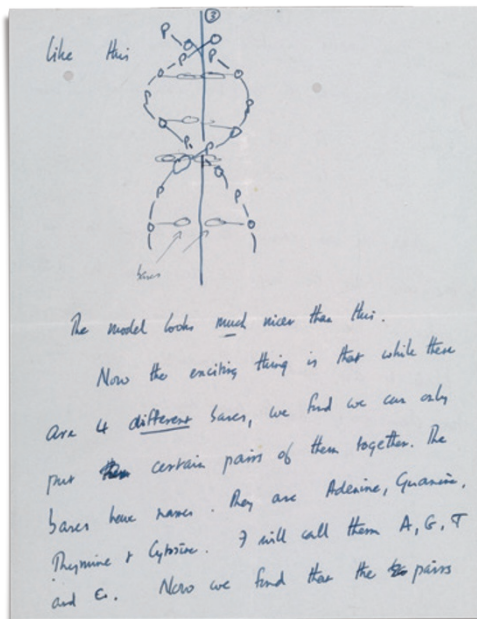 3
Like this
P
P
P
P
P
P
P
P
P
bases
The model looks much nicer than this.
Now the exciting thing is that while there
are 4 different bases, we find we can only
put certain pairs of them together. The
bases have names. They are Adenine, Guanine,
Thymine & Cytosine. I will call them A, G, T
and C. Now we find that the pairs